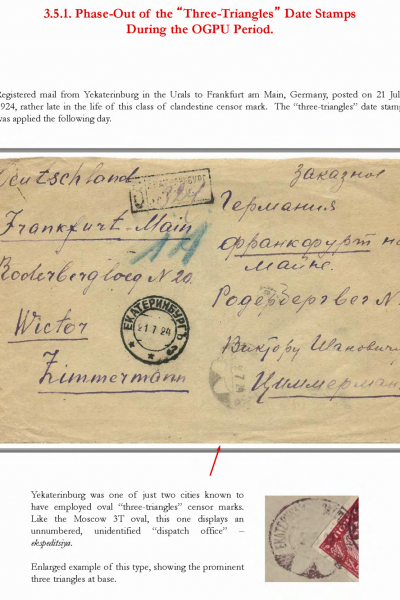 3.5.1. Phase-Out of the “Three-Triangles” Date Stamps
During the OGPU Period.
Registered mail from Yekaterinburg in the Urals to Frankfurt am Main, Germany, posted on 21 Jul
1924, rather late in the life of this class of clandestine censor mark. The “three-triangles” date stamp
was applied the following day.
Deutschland
Frankfurt-Main
N 20.
Wictor
Zimmermann
ЕКАТЕРИНБУРГЪ
21 7 24
Заказное
Германия
франкфурт на
Майне.
Родербергвег N
Виктору
Циммерман
Yekaterinburg was one of just two cities known to
have employed oval “three-triangles” censor marks.
Like the Moscow 3T oval, this one displays an
unnumbered, unidentified “dispatch office” –
ekspeditsiya.
Enlarged example of this type, showing the prominent
three triangles at base.